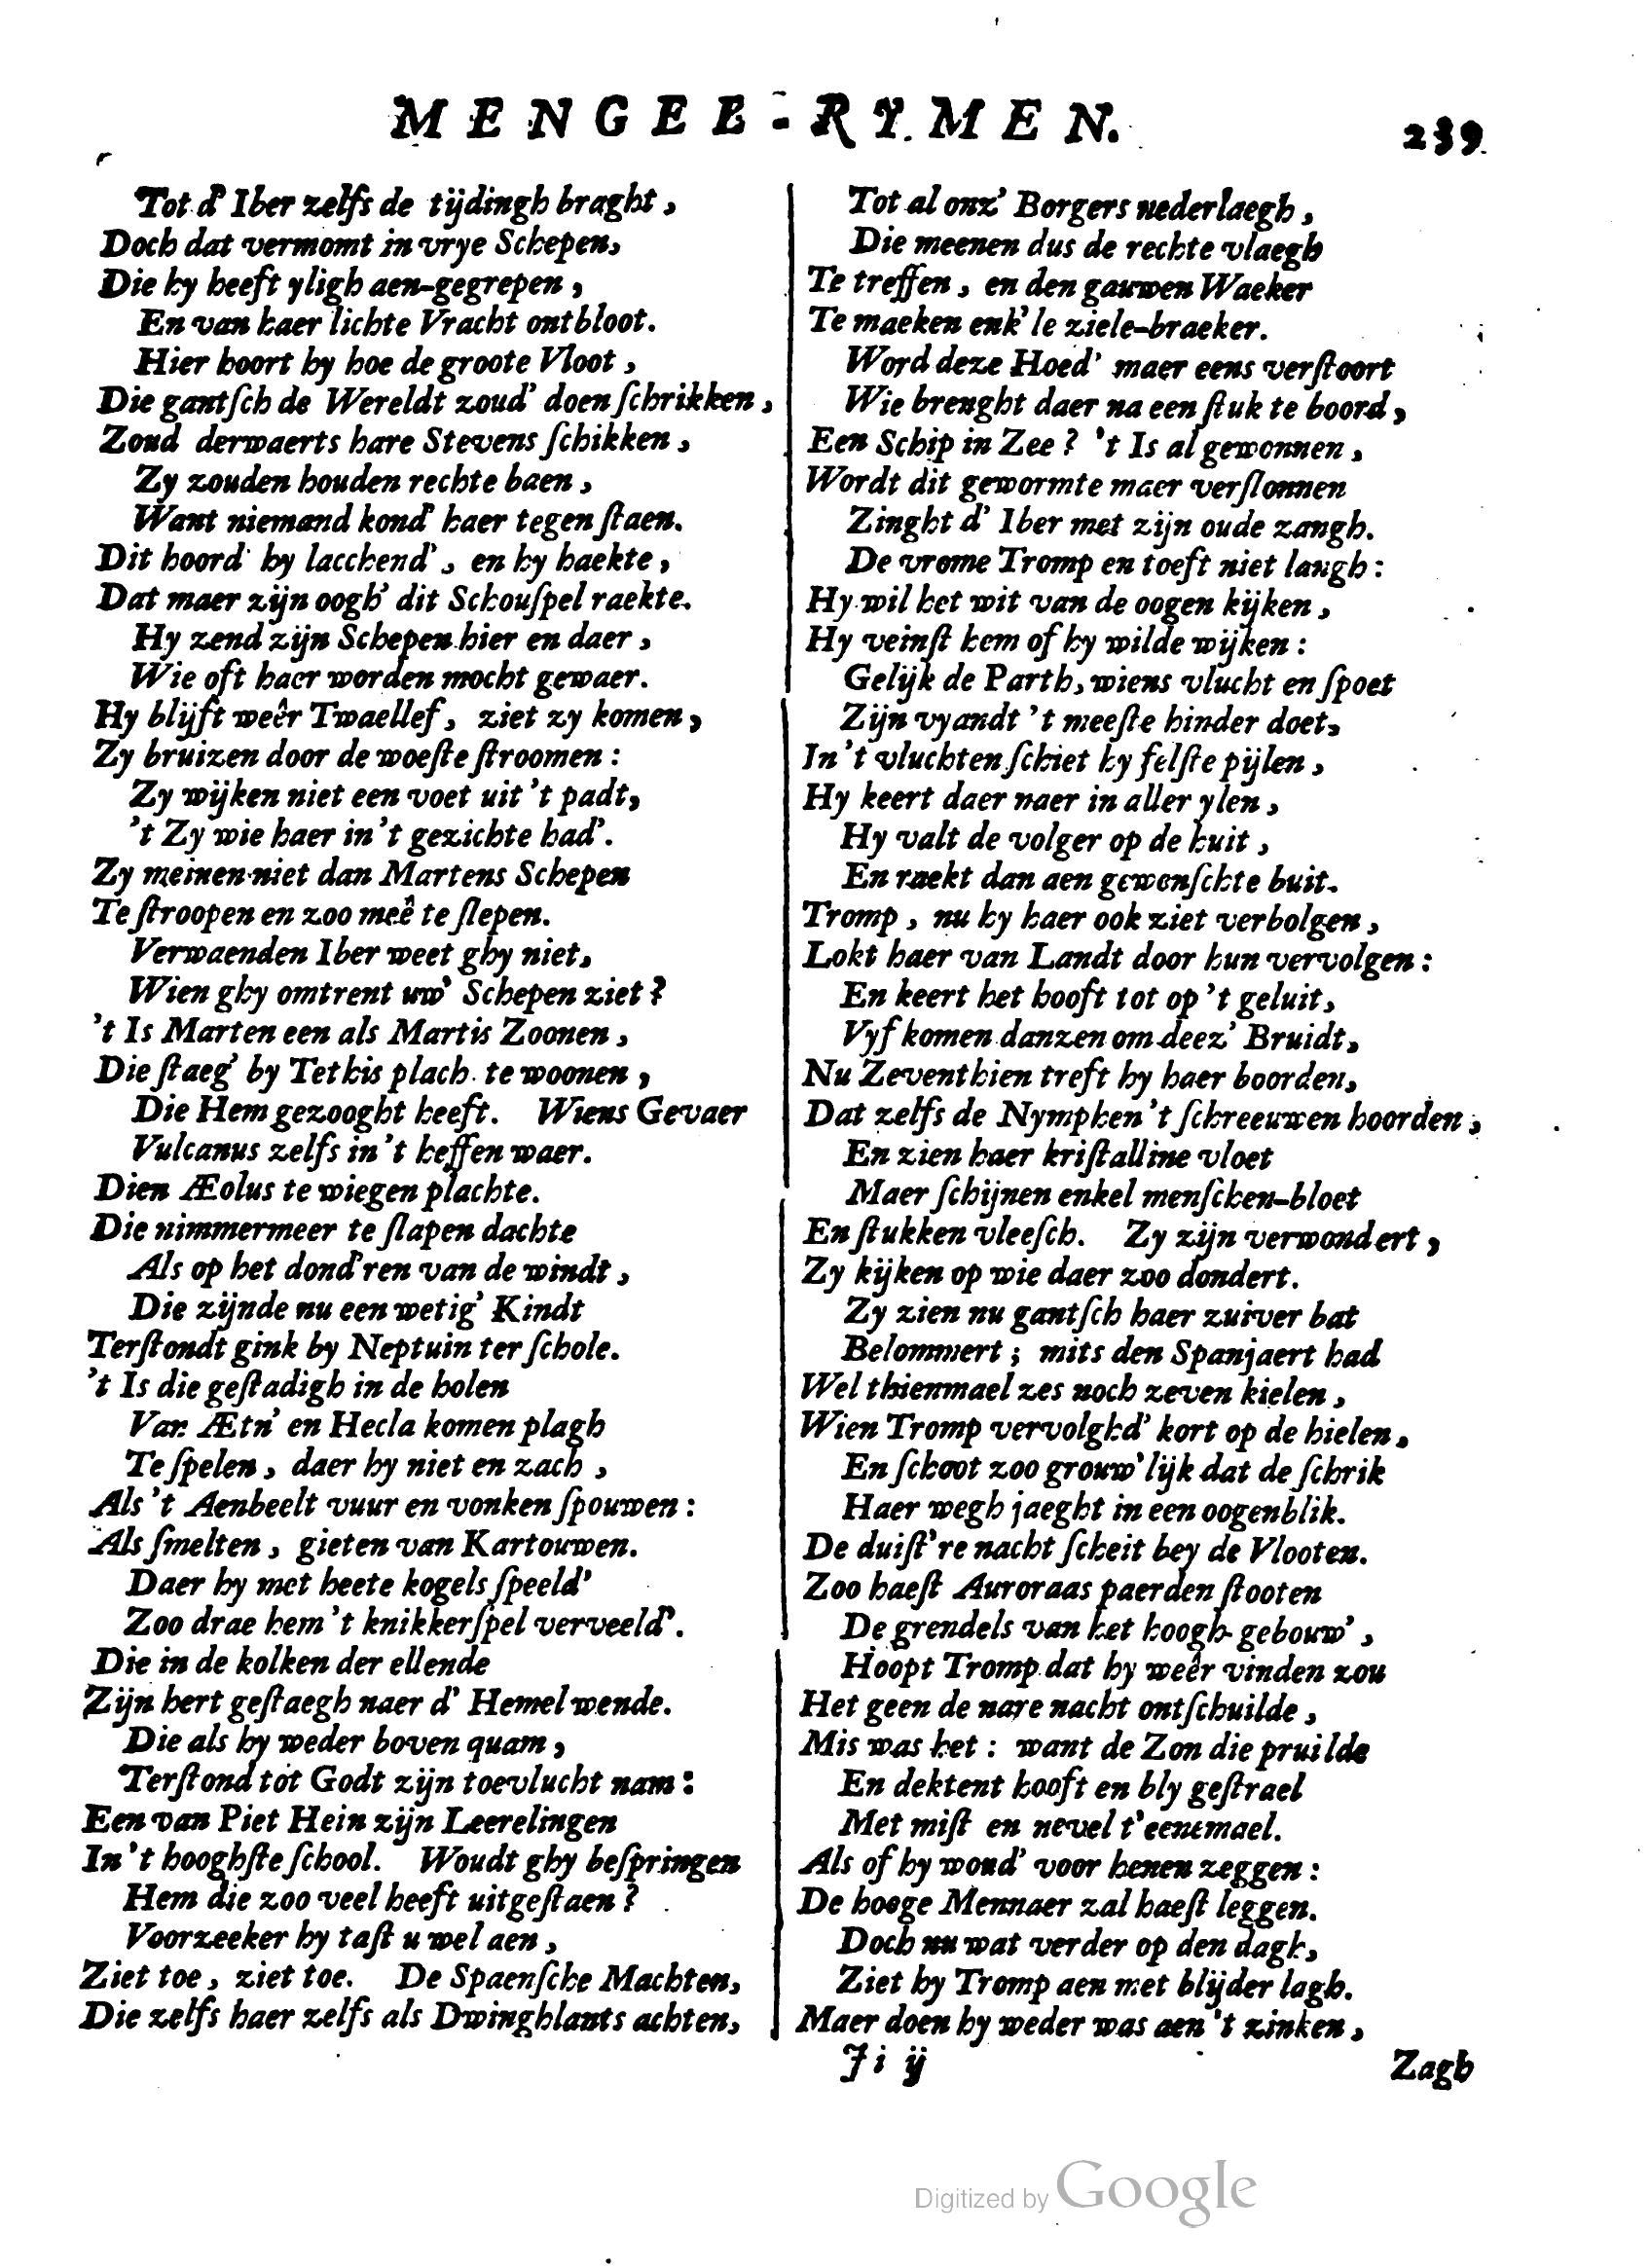 MENGEL-RYMEN. 239
Tot d' Iber zelfs de tijdingh braght,
Doch dat vermomt in vrye Schepen,
Die hy heeft yligh aen-gegrepen,
En van haer lichte Vracht ontbloot.
Hier hoort hy hoe de groote Vloot,
Die gantſch de Wereldt zoud' doen ſchrikken,
Zoud derwaerts hare Stevens ſchikken,
Zy zouden houden rechte baen,
Want niemand kond' haer tegen ſtaen.
Dit hoord' hy lacchend', en hy haekte,
Dat maer zijn oogh' dit Schouſpel raekte.
Hy zend zijn Schepen hier en daer,
Wie oft haer worden mocht gewaer.
Hy blijft weêr Twaellef, ziet zy komen,
Zy bruizen door de woeſte ſtroomen:
Zy wijken niet een voet uit 't padt,
't Zy wie haer in 't gezichte had'.
Zy meinen niet dan Martens Schepen
Te ſtroopen en zoo meê te ſlepen.
Verwaenden Iber weet ghy niet,
Wien ghy omtrent uw' Schepen ziet?
't Is Marten een als Martis Zoonen,
Die ſtaeg' by Tethis plach te woonen,
Die Hem gezooght heeft. Wiens Gevaer
Vulcanus zelfs in 't heffen waer.
Dien Æolus te wiegen plachte.
Die nimmermeer te ſlapen dachte
Als op het dond'ren van de windt,
Die zijnde nu een wetig' Kindt
Terſtondt gink by Neptuin ter ſchole.
't Is die geſtadigh in de holen
Van Ætn' en Hecla komen plagh
Te ſpelen, daer hy niet en zach,
Als 't Aenbeelt vuur en vonken ſpouwen:
Als ſmelten, gieten van Kartouwen.
Daer hy met heete kogels ſpeeld'
Zoo drae hem 't knikkerſpel verveeld'.
Die in de kolken der ellende
Zijn hert geſtaegh naer d' Hemel wende.
Die als hy weder boven quam,
Terſtond tot Godt zijn toevlucht nam:
Een van Piet Hein zijn Leerelingen
In 't hooghſte ſchool. Woudt ghy beſpringen
Hem die zoo veel heeft uitgeſtaen?
Voorzeeker hy taſt u wel aen,
Ziet toe, ziet toe. De Spaenſche Machten,
Die zelfs haer zelfs als Dwinghlants achten,
Tot al onz' Borgers nederlaegh,
Die meenen dus de rechte vlaegh
Te treffen, en den gauwen Waeker
Te maeken enk'le ziele-braeker.
Word deze Hoed' maer eens verſtoort
Wie brenght daer na een ſtuk te boord,
Een Schip in Zee? 't Is al gewonnen,
Wordt dit gewormte maer verſlonnen
Zinght d' Iber met zijn oude zangh.
De vrome Tromp en toeft niet langh:
Hy wil het wit van de oogen kijken,
Hy veinſt hem of hy wilde wijken:
Gelijk de Parth, wiens vlucht en ſpoet
Zijn vyandt 't meeſte hinder doet,
In 't vluchten ſchiet hy felſte pijlen,
Hy keert daer naer in aller ylen,
Hy valt de volger op de huit,
En raekt dan aen gewenſchte buit.
Tromp, nu hy haer ook ziet verbolgen,
Lokt haer van Landt door hun vervolgen:
En keert het hooft tot op 't geluit,
Vyf komen danzen om deez' Bruidt,
Nu Zeventhien treft hy haer boorden,
Dat zelfs de Nymphen 't ſchreeuwen hoorden,
En zien haer kriſtalline vloet
Maer ſchijnen enkel menſchen-bloet
En ſtukken vleeſch. Zy zijn verwondert,
Zy kijken op wie daer zoo dondert.
Zy zien nu gantſch haer zuiver bat
Belommert; mits den Spanjaert had
Wel thienmael zes noch zeven kielen,
Wien Tromp vervolghd' kort op de hielen,
En ſchoot zoo grouw'lijk dat de ſchrik
Haer wegh jaeght in een oogenblik.
De duiſt're nacht ſcheit bey de Vlooten.
Zoo haeſt Auroraas paerden ſtooten
De grendels van het hoogh gebouw',
Hoopt Tromp dat hy weêr vinden zou
Het geen de nare nacht ontſchuilde,
Mis was het: want de Zon die pruilde
En dektent hooft en bly geſtrael
Met miſt en nevel t'eenemael.
Als of hy woud' voor henen zeggen:
De hoege Mennaer zal haeſt leggen.
Doch nu wat verder op den dagh,
Ziet hy Tromp aen met blijder lagh.
Maer doen hy weder was aen 't zinken,
Ii ij Zagh
Digitized by Google